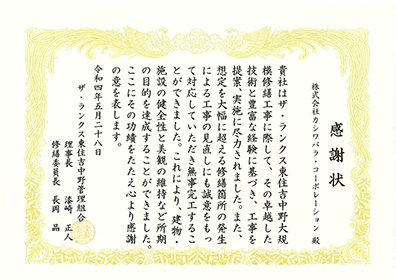 感謝状
株式会社カシワバラ・コーポレーション 殿
貴社はザ・ランクス東住吉中野大規
模修繕工事に際して、その卓越した
技術と豊富な経験に基づき、工事を
提案、実施に尽力されました。また、
想定を大幅に超える修繕箇所の発生
による工事の見直しにも誠意をもっ
て対応していただき無事完工するこ
とができました。これにより、建物・
施設の健全性と美観の維持など所期
の目的を達成することができました。
ここにその功績をたたえ心より感謝
の意を表します。
令和四年五月二十八日
ザ・ランクス東住吉中野管理組合
理事長 漆崎 正人
修繕委員長 長岡 晶